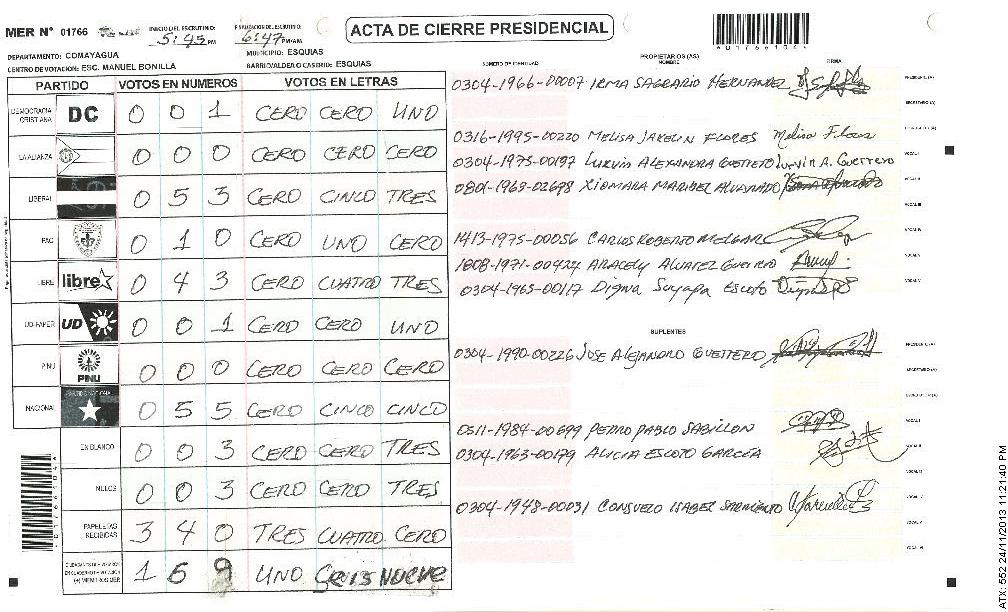 MER N° 01766
INICIO DEL ESCRUTINIO:
5:45 PM
FINALIZACION DEL ESCRUTINIO:
6:47 PM/AM
ACTA DE CIERRE PRESIDENCIAL
DEPARTAMENTO: COMAYAGUA
MUNICIPIO: ESQUIAS
CENTRO DE VOTACION: ESC. MANUEL BONILLA
BARRIO/ALDEA O CASERIO: ESQUIAS
PARTIDO VOTOS EN NUMEROS VOTOS EN LETRAS
DEMOCRACIA CRISTIANA DC 0 0 1 CERO CERO UNO
LA ALIANZA 0 0 0 CERO CERO CERO
LIBERAL 0 5 3 CERO CINCO TRES
PAC 0 1 0 CERO UNO CERO
LIBRE libre 0 4 3 CERO CUATRO TRES
UD-FAPER UD 0 0 1 CERO CERO UNO
PINU PINU 0 0 0 CERO CERO CERO
NACIONAL 0 5 5 CERO CINCO CINCO
EN BLANCO 0 0 3 CERO CERO TRES
NULOS 0 0 3 CERO CERO TRES
PAPELETAS RECIBIDAS 3 4 0 TRES CUATRO CERO
(+) MIEMBROS MER 1 6 9 UNO SEIS NUEVE
NUMERO DE IDENTIDAD
PROPIETARIOS (AS)
NOMBRE
FIRMA
0304-1966-00007 IRMA SAGRARIO HERNANDEZ
PRESIDENTE (A)
SECRETARIO (A)
0316-1995-00220 MELISA JAKELIN FLORES Melisa Flores
VOCAL I
0304-1975-00197 LURVIN ALEXANDRA GUERRERO Lurvin A. Guerrero
VOCAL II
0801-1969-02698 XIOMARA MARIBEL ALVARADO
VOCAL III
1413-1975-00056 CARLOS ROBERTO MELGAR
VOCAL IV
1808-1971-00424 ARACELY ALVAREZ GUERRERO
VOCAL V
0304-1965-00117 Digna Suyapa Escoto
SUPLENTES
0304-1990-00226 JOSE AlEJANDRO GUERRERO
PRESIDENTE (A)
SECRETARIO (A)
0511-1984-00699 PEDRO PABLO SABILLON
0304-1963-00179 ALICIA ESCOTO GARCÍA
0304-1948-00031 CONSUELO ISABEL SARMIENTO
ATX: 552 24/11/2013 11:21:40 PM